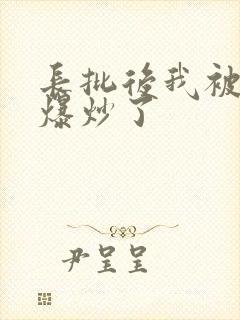 長批後我被
爆炒了
尹呈呈